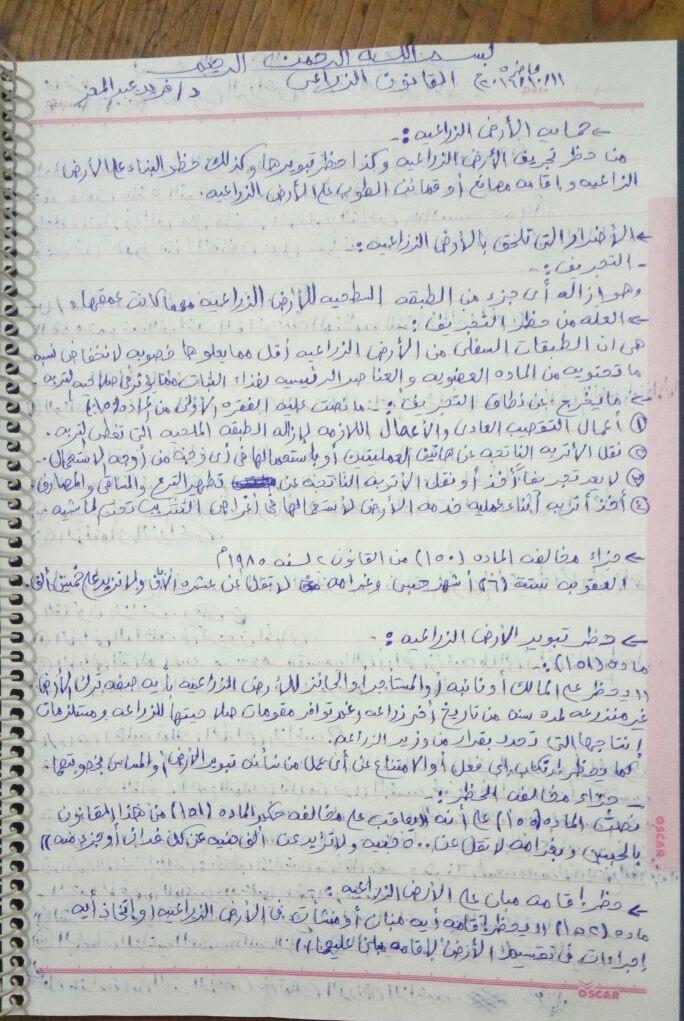 بسم الله الرحمن الرحيم
محاضرة ٥
القانون الزراعى
د/ فريد عبد المعز
Date
← حماية الأرض الزراعيه :-
من حظر تجريف الأرض الزراعيه وكذا حظر تبويرها وكذلك حظر البناء على الأرض
الزراعيه وإقامه مصانع أو قمائن الطوب على الأرض الزراعيه.
← الأضرار التى تلحق بالأرض الزراعيه :-
- التجريف :-
وهو ازاله أى جزء من الطبقه السطحيه للأرض الزراعيه مهما كانت عمقها.
← العله من حظر التجريف :
هى ان الطبقات السفلى من الأرض الزراعيه أقل مما يعلوها خصوبه لانخفاض نسبه
ما تحتويه من الماده العضويه والعناصر الرئيسيه لغذاء النبات مما يؤثر فى صلاحيه التربه.
← ما يخرج عن نطاق التجريف :- ما نصت عليه الفقره الأولى من الماده (١٥٠)
① أعمال التقصيب العادى والأعمال اللازمه لإزاله الطبقه الملحيه التى تغطى التربه.
② نقل الأتربه الناتجه عن هاتين العمليتين أو باستعمالها فى أى وجه من أوجه الاستعمال.
③ لا يعد تجريفا أخذ أو نقل الأتربه الناتجه عن تطهير الترع والمساقى والمصارف.
④ أخذ أتربه أثناء عمليه خدمه الأرض لاستعمالها فى أغراض التتريب تحت الماشيه.
← جزاء مخالفه الماده (١٥٠) من القانون ٢ لسنه ١٩٨٥م
العقوبه ستة (٦) أشهر حبس وغرامه لا تقل عن عشره الآف ولا تزيد على خمسين ألف
← حظر تبوير الأرض الزراعيه :-
ماده (١٥١) :-
"يحظر على المالك أو نائبه أو المستأجر أو الحائز للأرض الزراعيه بأيه صفه ترك الأرض
غير منزرعه لمده سنه من تاريخ أخر زراعه رغم توافر مقومات صلاحيتها للزراعه ومستلزمات
إنتاجها التى تحدد بقرار من وزير الزراعه.
كما يحظر ارتكاب أى فعل أو الامتناع عن أى عمل من شأنه تبوير الأرض أو المساس بخصوبتها.
- جزاء مخالفه الحظر :
نصت الماده (١٥٥) على أنه "يعاقب على مخالفه حكم الماده (١٥١) من هذا القانون
بالحبس وبغرامه لا تقل عن ٥٠٠ جنيه ولا تزيد عن ألف جنيه عن كل فدان أو جزء منه"
← حظر إقامه مبان على الأرض الزراعيه :
ماده (١٥٢) "يحظر إقامه أيه مبان أو منشآت فى الأرض الزراعيه أو إتخاذ أيه
إجراءات فى تقسيم الأرض لإقامه مبان عليها"
OSCAR
OSCAR